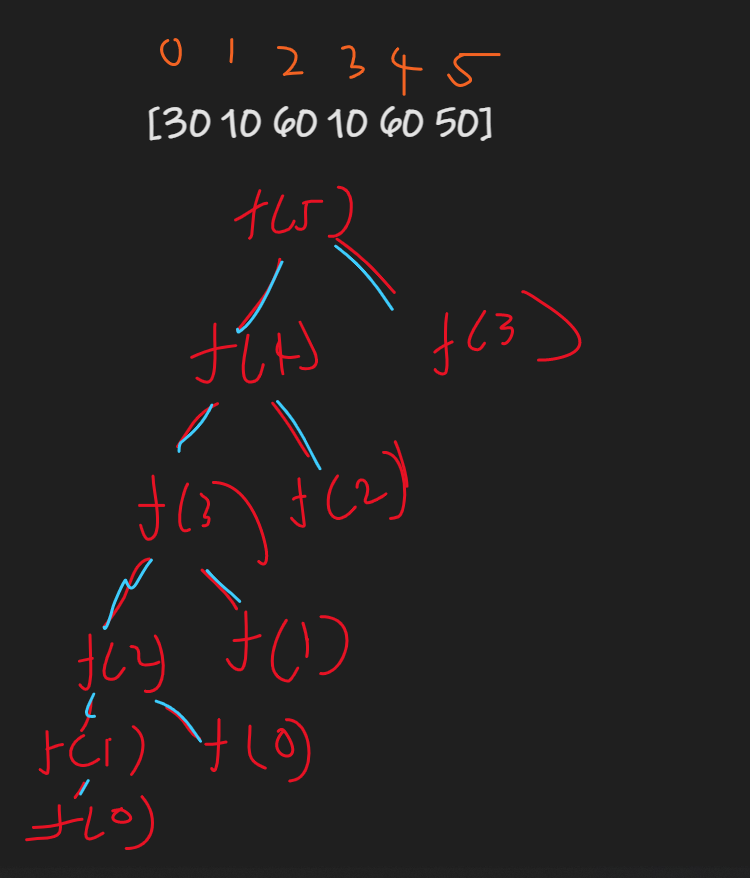 0 1 2 3 4 5
[30 10 60 10 60 50]
f(5)
f(4) f(3)
f(3) f(2)
f(2) f(1)
f(1) f(0)
f(0)